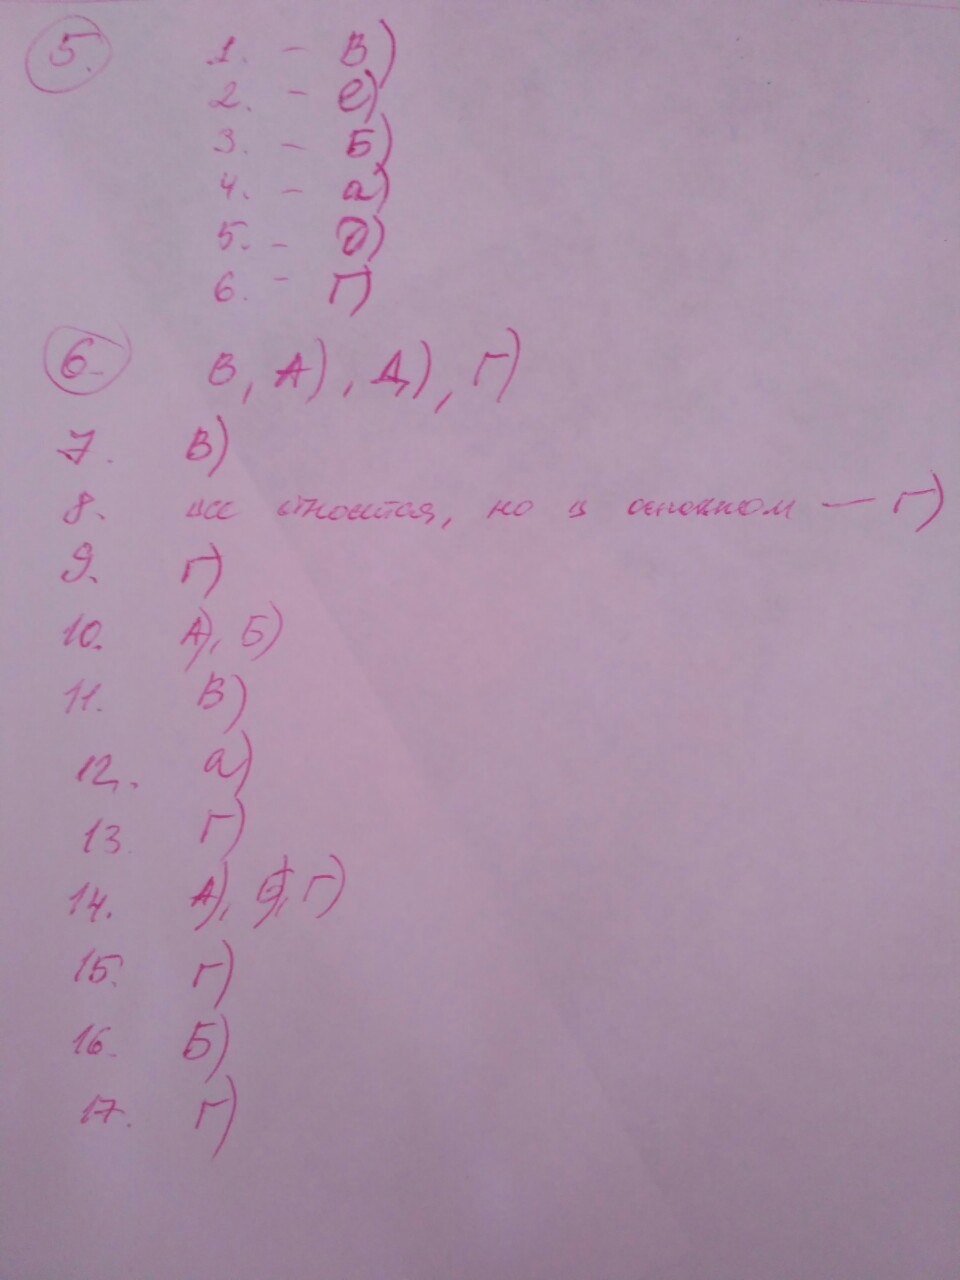 5. 1. - В)
2. - е)
3. - Б)
4. - а)
5. - д)
6. - Г)
6. В, А), Д), Г)
7. В)
8. все относится, но в основном — Г)
9. Г)
10. А), Б)
11. В)
12. а)
13. Г)
14. А), Б), Г)
15. Г)
16. Б)
17. Г)